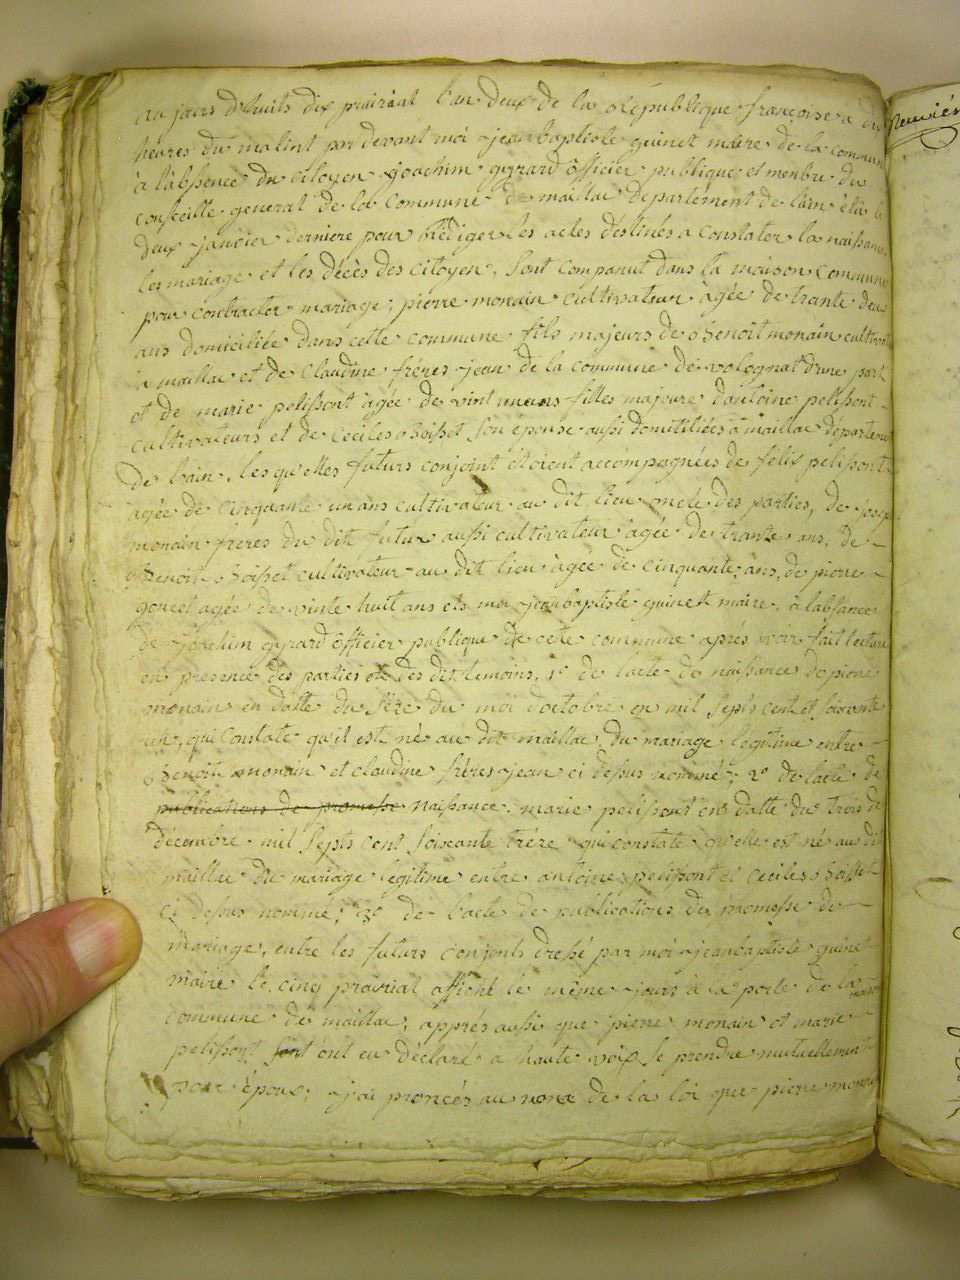 au jours dhuits dix prairial l'an deux de la République françoise a dix
heures du matint par devant moi jean baptiste guinet maire de la commune
à l'absence du citoyen joachim gyrard officier publique et menbre du
conseille general de la commune de maillac departement de lain élû le
deux janvier derniere pour rédiger les actes destinés a constater la naissance
les mariage et les décès des citoyen, sont comparut dans la maison commune
pour contracter mariage; pierre monain cultivateur agée de trante deux
ans domiciliée dans cette commune fils majeurs de Benoit monain cultivat
a maillac et de Claudine frères jean de la commune de volognat d'une part
et de marie pelissont agée de vint ans filles majeure dantoine pelissont
cultivateurs et de Ceciles Boisset son épouse aussi domiciliées a maillac departeme
de lain, lesquelles futurs conjoint étoient accompagnées de felix pelissont
agée de cinquante un ans cultivateur au dit lieu oncle des parties, de josep
monain frères du dit futur aussi cultivateur agée de trante ans, de
Benoit Boisset cultivateur au dit lieu agée de cinquante ans, de pierre
goucet agée de vinte huit ans ets moi jean baptiste guinet maire, a labsance
de joachim gyrard officier publique de cete commune après avoir fait lecture
en presence des parties et des dit temoins, 1° de lacte de naissance de pierre
monain en datte du seze du moi doctobre en mil septs cent et soixante
un, qui constate qu'il est né au dit maillac du mariage legitime entre
Benoit monain et claudine frères jean ci dessus nommé; 2° de lacte de
publications de promesse naissance, marie pelissont en datte du trois de
décembre mil septs cent soixante trèze qui constate qu'elle est né au dit
maillac du mariage légitime entre antoine pelissont et Ceciles Boisset
ci dessus nommé; 3° de l'acte de publications de promesse de
mariage, entre les futurs conjoints dressé par moi jean baptiste guinet
maire le cinq prairial affiché le même jours à la porte de la maison
commune de maillac; apprès aussi que pierre monain et marie
pelissont sont ont eu déclaré a haute voix se prendre mutuellement
pour époux; jai pronccés au nom de la loi que pierre monain